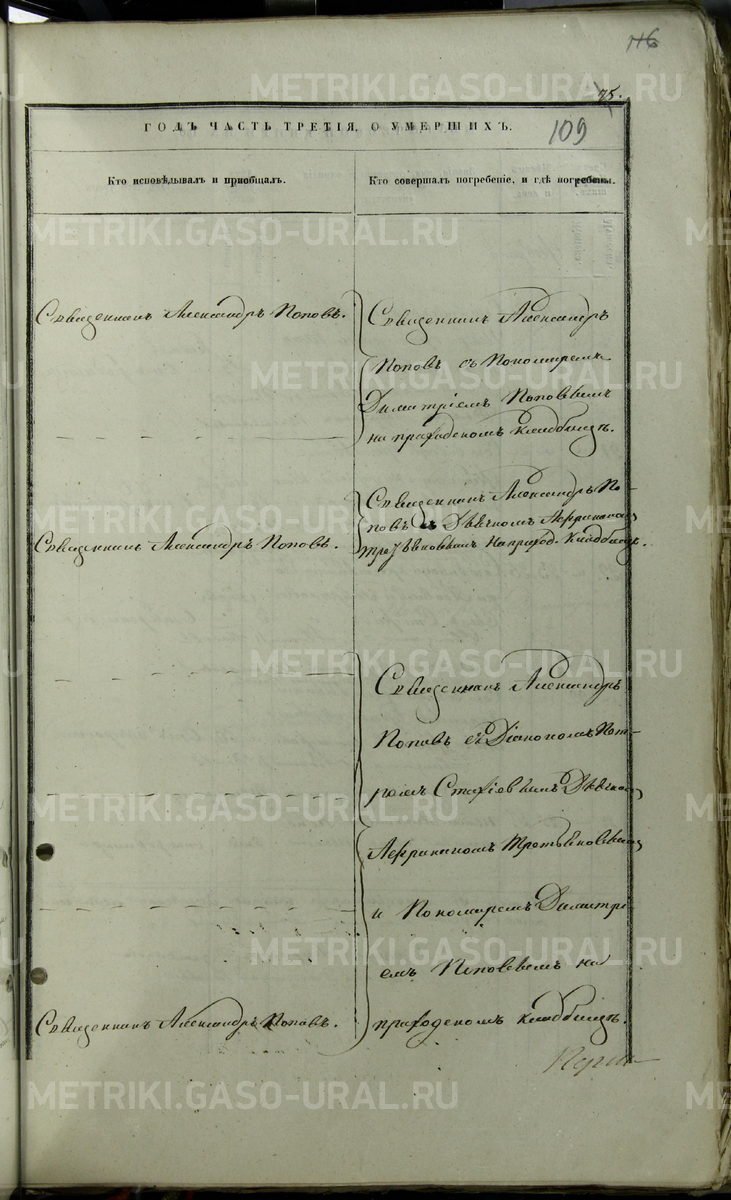 116
75.
109
ГОДЪ ЧАСТЬ ТРЕТІЯ, О УМЕРШИХЪ.
Кто исповѣдывалъ и пріобщалъ.
Кто совершалъ погребеніе, и гдѣ погребены.
Священникъ Александръ Поповъ.
Священникъ Александръ
Поповъ съ Пономаремъ
Димитріемъ Поповымъ
на приходскомъ кладбищѣ.
Священникъ Александръ Поповъ.
Священникъ Александръ По-
повъ съ Дьячкомъ
на приход. кладбищѣ.
Священникъ Александръ
Поповъ съ Діакономъ Пет-
ромъ Стахіевымъ Дьячкомъ
и Пономаремъ Димитрі-
емъ Поповымъ на
приходскомъ кладбищѣ.
Священникъ Александръ Поповъ.
METRIKI.GASO-URAL.RU